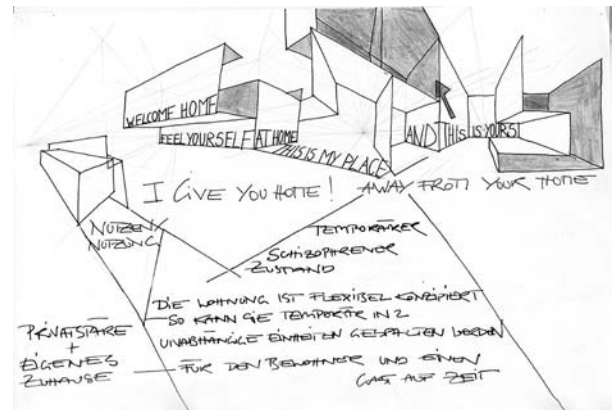 WELCOME HOME
FEEL YOURSELF AT HOME
THIS IS MY PLACE
AND THIS IS YOURS!
I GIVE YOU HOME! AWAY FROM YOUR HOME
NUTZEN/
NUTZUNG
TEMPORÄRER
SCHIZOPHRENER
ZUSTAND
DIE WOHNUNG IST FLEXIBEL KONZIPIERT
SO KANN SIE TEMPORÄR IN 2
UNABHÄNGIGE EINHEITEN GESPALTEN WERDEN
PRIVATSPÄRE
+
EIGENES
ZUHAUSE
FÜR DEN BEWOHNER UND EINEN
GAST AUF ZEIT